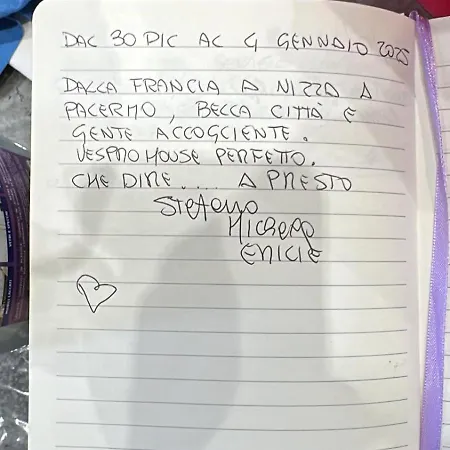 DAL 30 DIC AL 4 GENNAIO 2025
DALLA FRANCIA A NIZZA A
PALERMO, BELLA CITTÀ E
GENTE ACCOGLIENTE.
VESPRO HOUSE PERFETTO.
CHE DIRE.... A PRESTO
Stefano